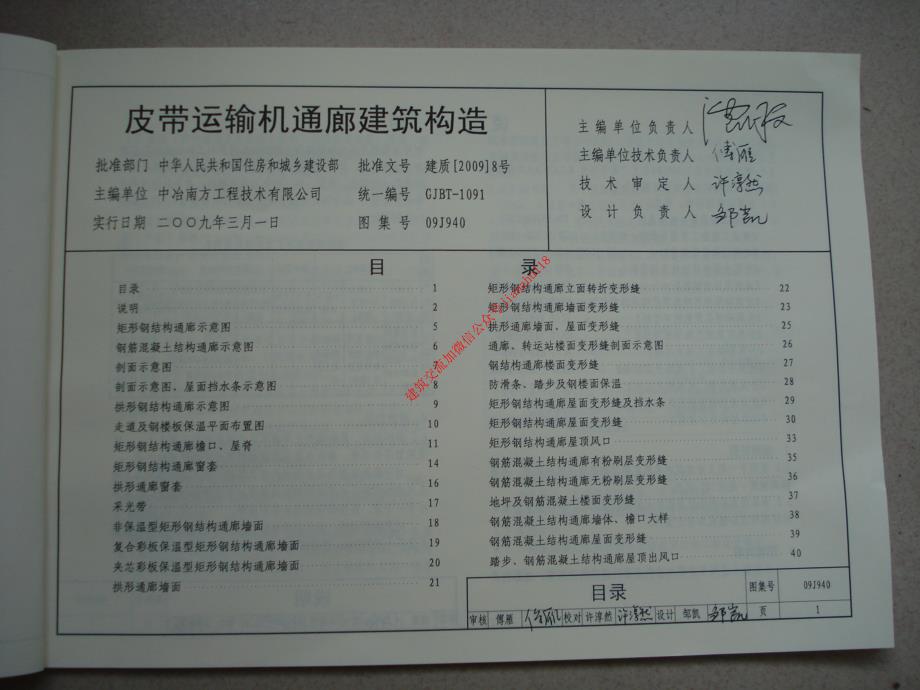 皮带运输机通廊建筑构造
批准部门 中华人民共和国住房和城乡建设部 批准文号 建质[2009]8号
主编单位 中冶南方工程技术有限公司 统一编号 GJBT-1091
实行日期 二〇〇九年三月一日 图集号 09J940
主编单位负责人
主编单位技术负责人 傅雁
技术审定人 许淳然
设计负责人 邹凯
目录
目录 1
说明 2
矩形钢结构通廊示意图 5
钢筋混凝土结构通廊示意图 6
剖面示意图 7
剖面示意图、屋面挡水条示意图 8
拱形钢结构通廊示意图 9
走道及钢楼板保温平面布置图 10
矩形钢结构通廊檐口、屋脊 11
矩形钢结构通廊窗套 14
拱形通廊窗套 16
采光带 17
非保温型矩形钢结构通廊墙面 18
复合彩板保温型矩形钢结构通廊墙面 19
夹芯彩板保温型矩形钢结构通廊墙面 20
拱形通廊墙面 21
矩形钢结构通廊立面转折变形缝 22
矩形钢结构通廊墙面变形缝 23
拱形通廊墙面、屋面变形缝 25
通廊、转运站楼面变形缝剖面示意图 26
钢结构通廊楼面变形缝 27
防滑条、踏步及钢楼面保温 28
矩形钢结构通廊屋面变形缝及挡水条 29
矩形钢结构通廊屋面变形缝 30
矩形钢结构通廊屋顶风口 33
钢筋混凝土结构通廊有粉刷层变形缝 35
钢筋混凝土结构通廊无粉刷层变形缝 36
地坪及钢筋混凝土楼面变形缝 37
钢筋混凝土结构通廊墙体、檐口大样 38
钢筋混凝土结构通廊屋面变形缝 39
踏步、钢筋混凝土结构通廊屋顶出风口 40
目录 图集号 09J940
审核 傅雁 校对 许淳然 许淳然 设计 邹凯 邹凯 页 1